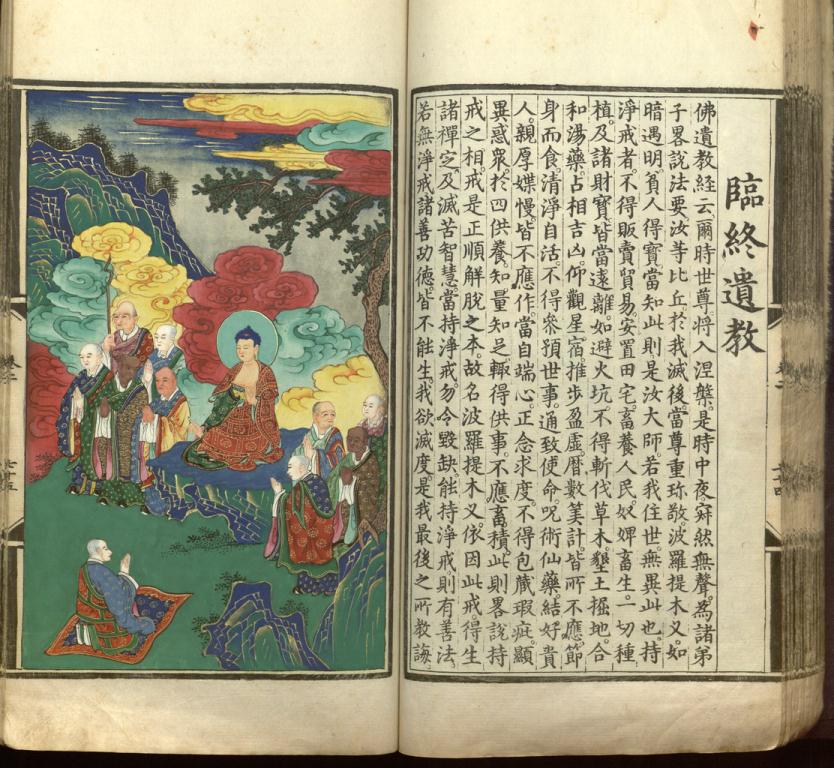 臨終遺教
佛遺教經云。爾時世尊。將入涅槃。是時中夜。寂然無聲。為諸弟
子畧說法要。汝等比丘。於我滅後。當尊重珍敬。波羅提木叉。如
暗遇明。貧人得寶。當知此則是汝大師。若我住世。無異此也。持
淨戒者。不得販賣貿易。安置田宅。畜養人民。奴婢畜生。一切種
植。及諸財寶。皆當遠離。如避火坑。不得斬伐草木。墾土掘地。合
和湯藥。占相吉凶。仰觀星宿。推步盈虛。曆數筭計。皆所不應。節
身而食。清淨自活。不得參預世事。通致使命。呪術仙藥。結好貴
人。親厚媟慢。皆不應作。當自端心。正念求度。不得包藏瑕疵。顯
異惑眾。於四供養。知量知足。輙得供事。不應畜積。此則畧說持
戒之相。戒是正順解脫之本。故名波羅提木叉。依因此戒。得生
諸禪定。及滅苦智慧。當持淨戒。勿令毀缺。能持淨戒。則有善法。
若無淨戒。諸善功德。皆不能生。我欲滅度。是我最後之所教誨。